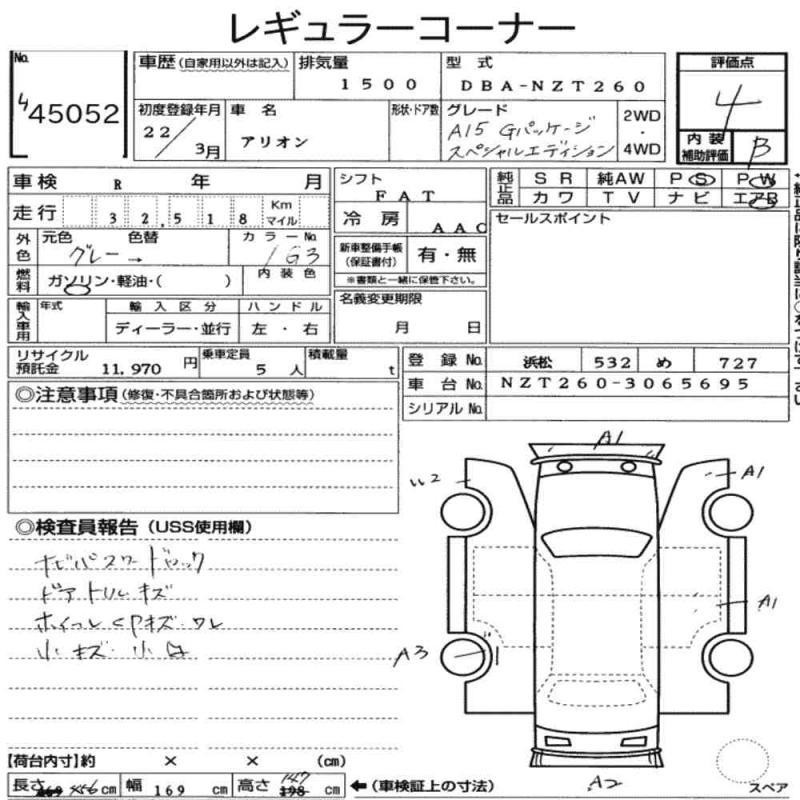 レギュラーコーナー
No. 45052
車歴 (自家用以外は記入) 排気量 1500 型式 DBA-NZT260 評価点 4
初度登録年月 22/3月 車名 アリオン 形状・ドア数 グレード A15 Gパッケージ スペシャルエディション 2WD・4WD 内装補助評価 B
車検 R 年 月 シフト FAT 純正品 SR 純AW PS PW
走行 32,518 Km マイル 冷房 AAC カワ TV ナビ エアB
外色 元色 グレー 色替 → カラーNo. 1G3 新車整備手帳 (保証書付) 有・無 セールスポイント
燃料 ガソリン・軽油・( ) 内装色 ※書類と一緒に保管下さい。
輸入車用 年式 輸入区分 ハンドル 名義変更期限
ディーラー・並行 左・右 月 日
リサイクル預託金 11,970 円 乗車定員 5 人 積載量 t 登録No. 浜松 532 め 727
車台No. NZT260-3065695
◎注意事項 (修復・不具合箇所および状態等) シリアルNo.
A1
A1
◎検査員報告 (USS使用欄)
ナビパスワードロック
ドアトリムキズ
A1
ホイールCPキズ ワレ
小キズ 小凹
A3
【荷台内寸】約 × × (cm)
A2
長さ 456 cm 幅 169 cm 高さ 147 cm ←(車検証上の寸法) スペア